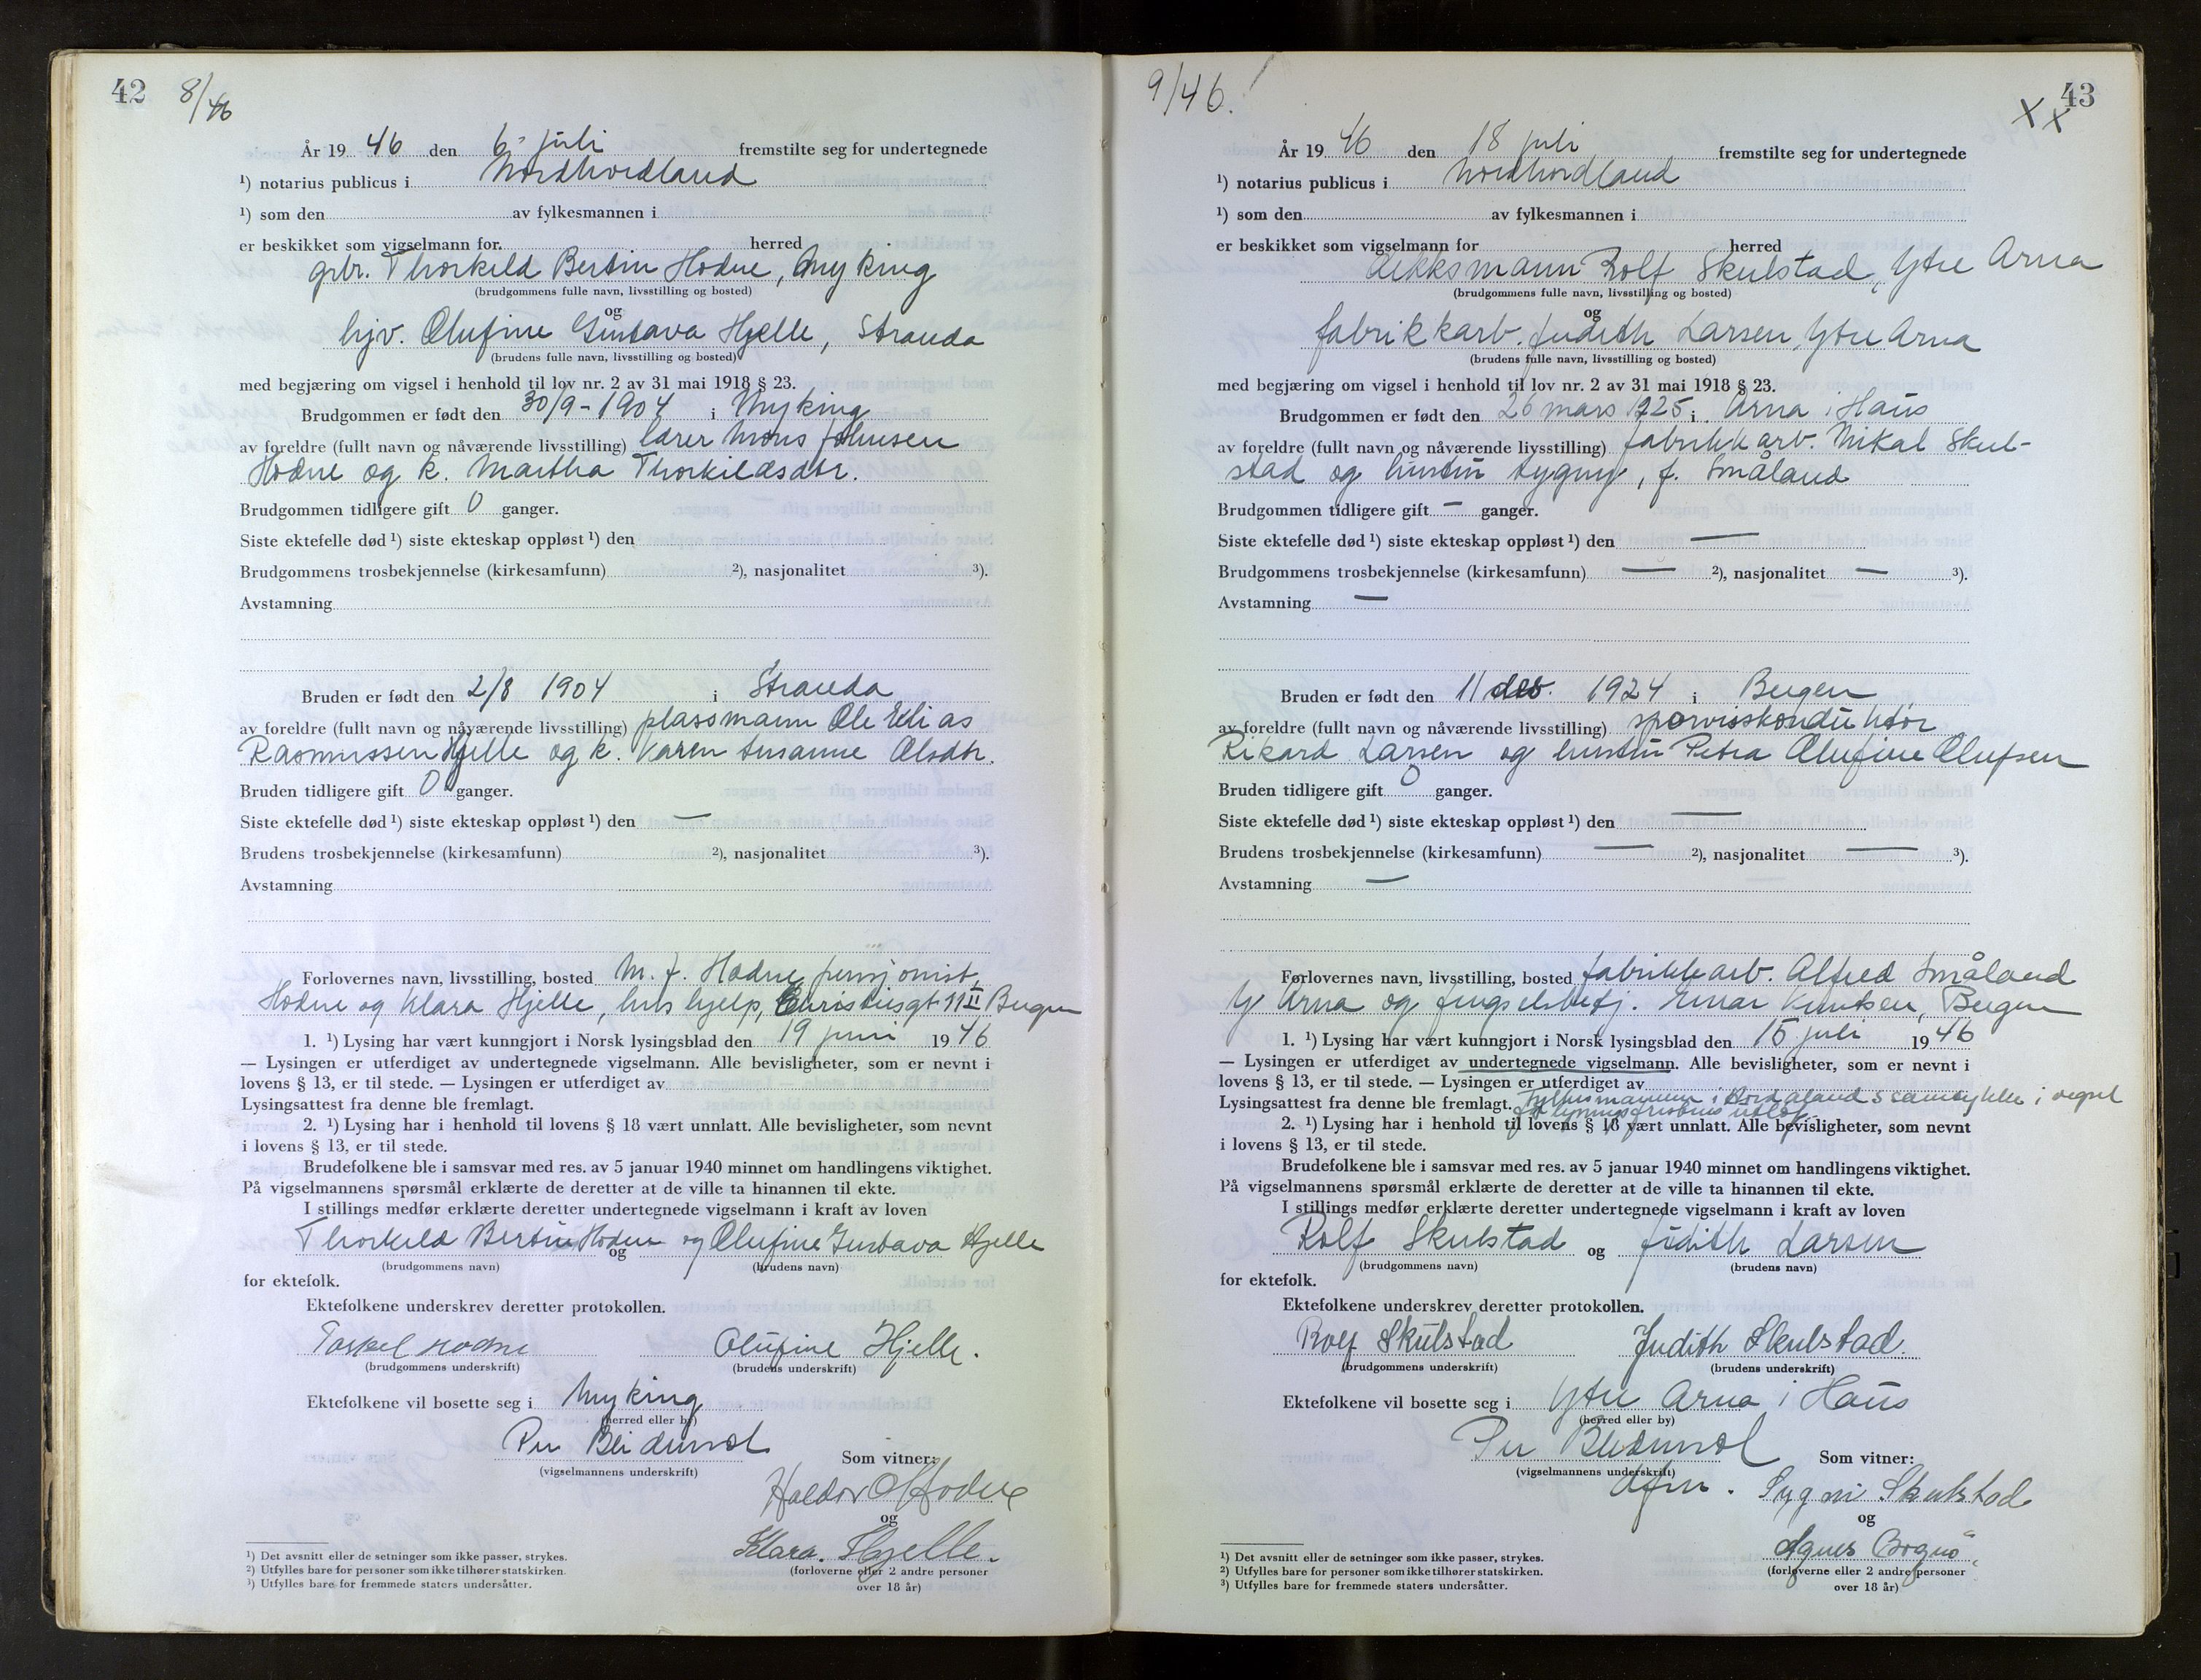 42 8/46
År 19 46 den 6. juli fremstilte seg for undertegnede
¹) notarius publicus i Nordhordland
¹) som den av fylkesmannen i
er beskikket som vigselmann for herred
gbr. Thorkild Bertin Hodne, Myking
(brudgommens fulle navn, livsstilling og bosted)
og
hjv. Olufine Gustava Hjelle, Stranda
(brudens fulle navn, livsstilling og bosted)
med begjæring om vigsel i henhold til lov nr. 2 av 31 mai 1918 § 23.
Brudgommen er født den 30/9-1904 i Myking
av foreldre (fullt navn og nåværende livsstilling) lærer Mons Johnsen
Hodne og k. Martha Thorkildsdtr.
Brudgommen tidligere gift 0 ganger.
Siste ektefelle død ¹) siste ekteskap oppløst ¹) den
Brudgommens trosbekjennelse (kirkesamfunn) ²), nasjonalitet ³).
Avstamning
Bruden er født den 2/8 1904 i Stranda
av foreldre (fullt navn og nåværende livsstilling) plassmann Ole Elias
Rasmussen Hjelle og k. Karen Susanne Olsdtr.
Bruden tidligere gift 0 ganger.
Siste ektefelle død ¹) siste ekteskap oppløst ¹) den —
Brudens trosbekjennelse (kirkesamfunn) ²), nasjonalitet ³).
Avstamning
Forlovernes navn, livsstilling, bosted M. J. Hodne, pensjonist,
Hodne og Klara Hjelle, hushjelp, Christiesgt 11 II Bergen
1. ¹) Lysing har vært kunngjort i Norsk lysingsblad den 19 juni 1946
— Lysingen er utferdiget av undertegnede vigselmann. Alle bevisligheter, som er nevnt i
lovens § 13, er til stede. — Lysingen er utferdiget av
Lysingsattest fra denne ble fremlagt.
2. ¹) Lysing har i henhold til lovens § 18 vært unnlatt. Alle bevisligheter, som nevnt
i lovens § 13, er til stede.
Brudefolkene ble i samsvar med res. av 5 januar 1940 minnet om handlingens viktighet.
På vigselmannens spørsmål erklærte de deretter at de ville ta hinannen til ekte.
I stillings medfør erklærte deretter undertegnede vigselmann i kraft av loven
Thorkild Bertin Hodne og Olufine Gustava Hjelle
og
(brudgommens navn) (brudens navn)
for ektefolk.
Ektefolkene underskrev deretter protokollen.
Torkel Hodne Olufine Hjelle.
(brudgommens underskrift) (brudens underskrift)
Ektefolkene vil bosette seg i Myking
(herred eller by)
Per Bleidunsl
(vigselmannens underskrift) Som vitner:
Haldor Hodne
og
Klara. Hjelle.
(forloverne eller 2 andre personer
over 18 år)
¹) Det avsnitt eller de setninger som ikke passer, strykes.
²) Utfylles bare for personer som ikke tilhører statskirken.
³) Utfylles bare for fremmede staters undersåtter.
9/46. 43
X X
År 19 46 den 18 juli fremstilte seg for undertegnede
¹) notarius publicus i Nordhordland
¹) som den av fylkesmannen i
er beskikket som vigselmann for herred
dekksmann Rolf Skulstad, Ytre Arna
(brudgommens fulle navn, livsstilling og bosted)
og
fabrikkarb. Judith Larsen, Ytre Arna
(brudens fulle navn, livsstilling og bosted)
med begjæring om vigsel i henhold til lov nr. 2 av 31 mai 1918 § 23.
Brudgommen er født den 26 mars 1925 i Arna i Haus
av foreldre (fullt navn og nåværende livsstilling) fabrikkarb. Mikal Skul-
stad og hustru Sygny, f. Småland
Brudgommen tidligere gift — ganger.
Siste ektefelle død ¹) siste ekteskap oppløst ¹) den —
Brudgommens trosbekjennelse (kirkesamfunn) — ²), nasjonalitet — ³).
Avstamning —
Bruden er født den 11 des. 1924 i Bergen
av foreldre (fullt navn og nåværende livsstilling) sporvisskonduktør
Rikard Larsen og hustru Petra Olufine Olufsen
Bruden tidligere gift 0 ganger.
Siste ektefelle død ¹) siste ekteskap oppløst ¹) den —
Brudens trosbekjennelse (kirkesamfunn) — ²), nasjonalitet — ³).
Avstamning —
Forlovernes navn, livsstilling, bosted fabrikkarb. Alfred Småland
Y Arna og fengselsbetj. Einar Knutsen, Bergen
1. ¹) Lysing har vært kunngjort i Norsk lysingsblad den 15 juli 1946
— Lysingen er utferdiget av undertegnede vigselmann. Alle bevisligheter, som er nevnt i
lovens § 13, er til stede. — Lysingen er utferdiget av
Lysingsattest fra denne ble fremlagt. Fylkesmannen i Hordalands samtykke i vigsel
før lysingsfristens utløp
2. ¹) Lysing har i henhold til lovens § 18 vært unnlatt. Alle bevisligheter, som nevnt
i lovens § 13, er til stede.
Brudefolkene ble i samsvar med res. av 5 januar 1940 minnet om handlingens viktighet.
På vigselmannens spørsmål erklærte de deretter at de ville ta hinannen til ekte.
I stillings medfør erklærte deretter undertegnede vigselmann i kraft av loven
Rolf Skulstad og Judith Larsen
(brudgommens navn) (brudens navn)
for ektefolk.
Ektefolkene underskrev deretter protokollen.
Rolf Skulstad Judith Skulstad.
(brudgommens underskrift) (brudens underskrift)
Ektefolkene vil bosette seg i Ytre Arna i Haus
(herred eller by)
Per Bleidunsl
(vigselmannens underskrift) Som vitner:
Sygni Skulstad
og
Agnes Bognø
(forloverne eller 2 andre personer
over 18 år)
¹) Det avsnitt eller de setninger som ikke passer, strykes.
²) Utfylles bare for personer som ikke tilhører statskirken.
³) Utfylles bare for fremmede staters undersåtter.